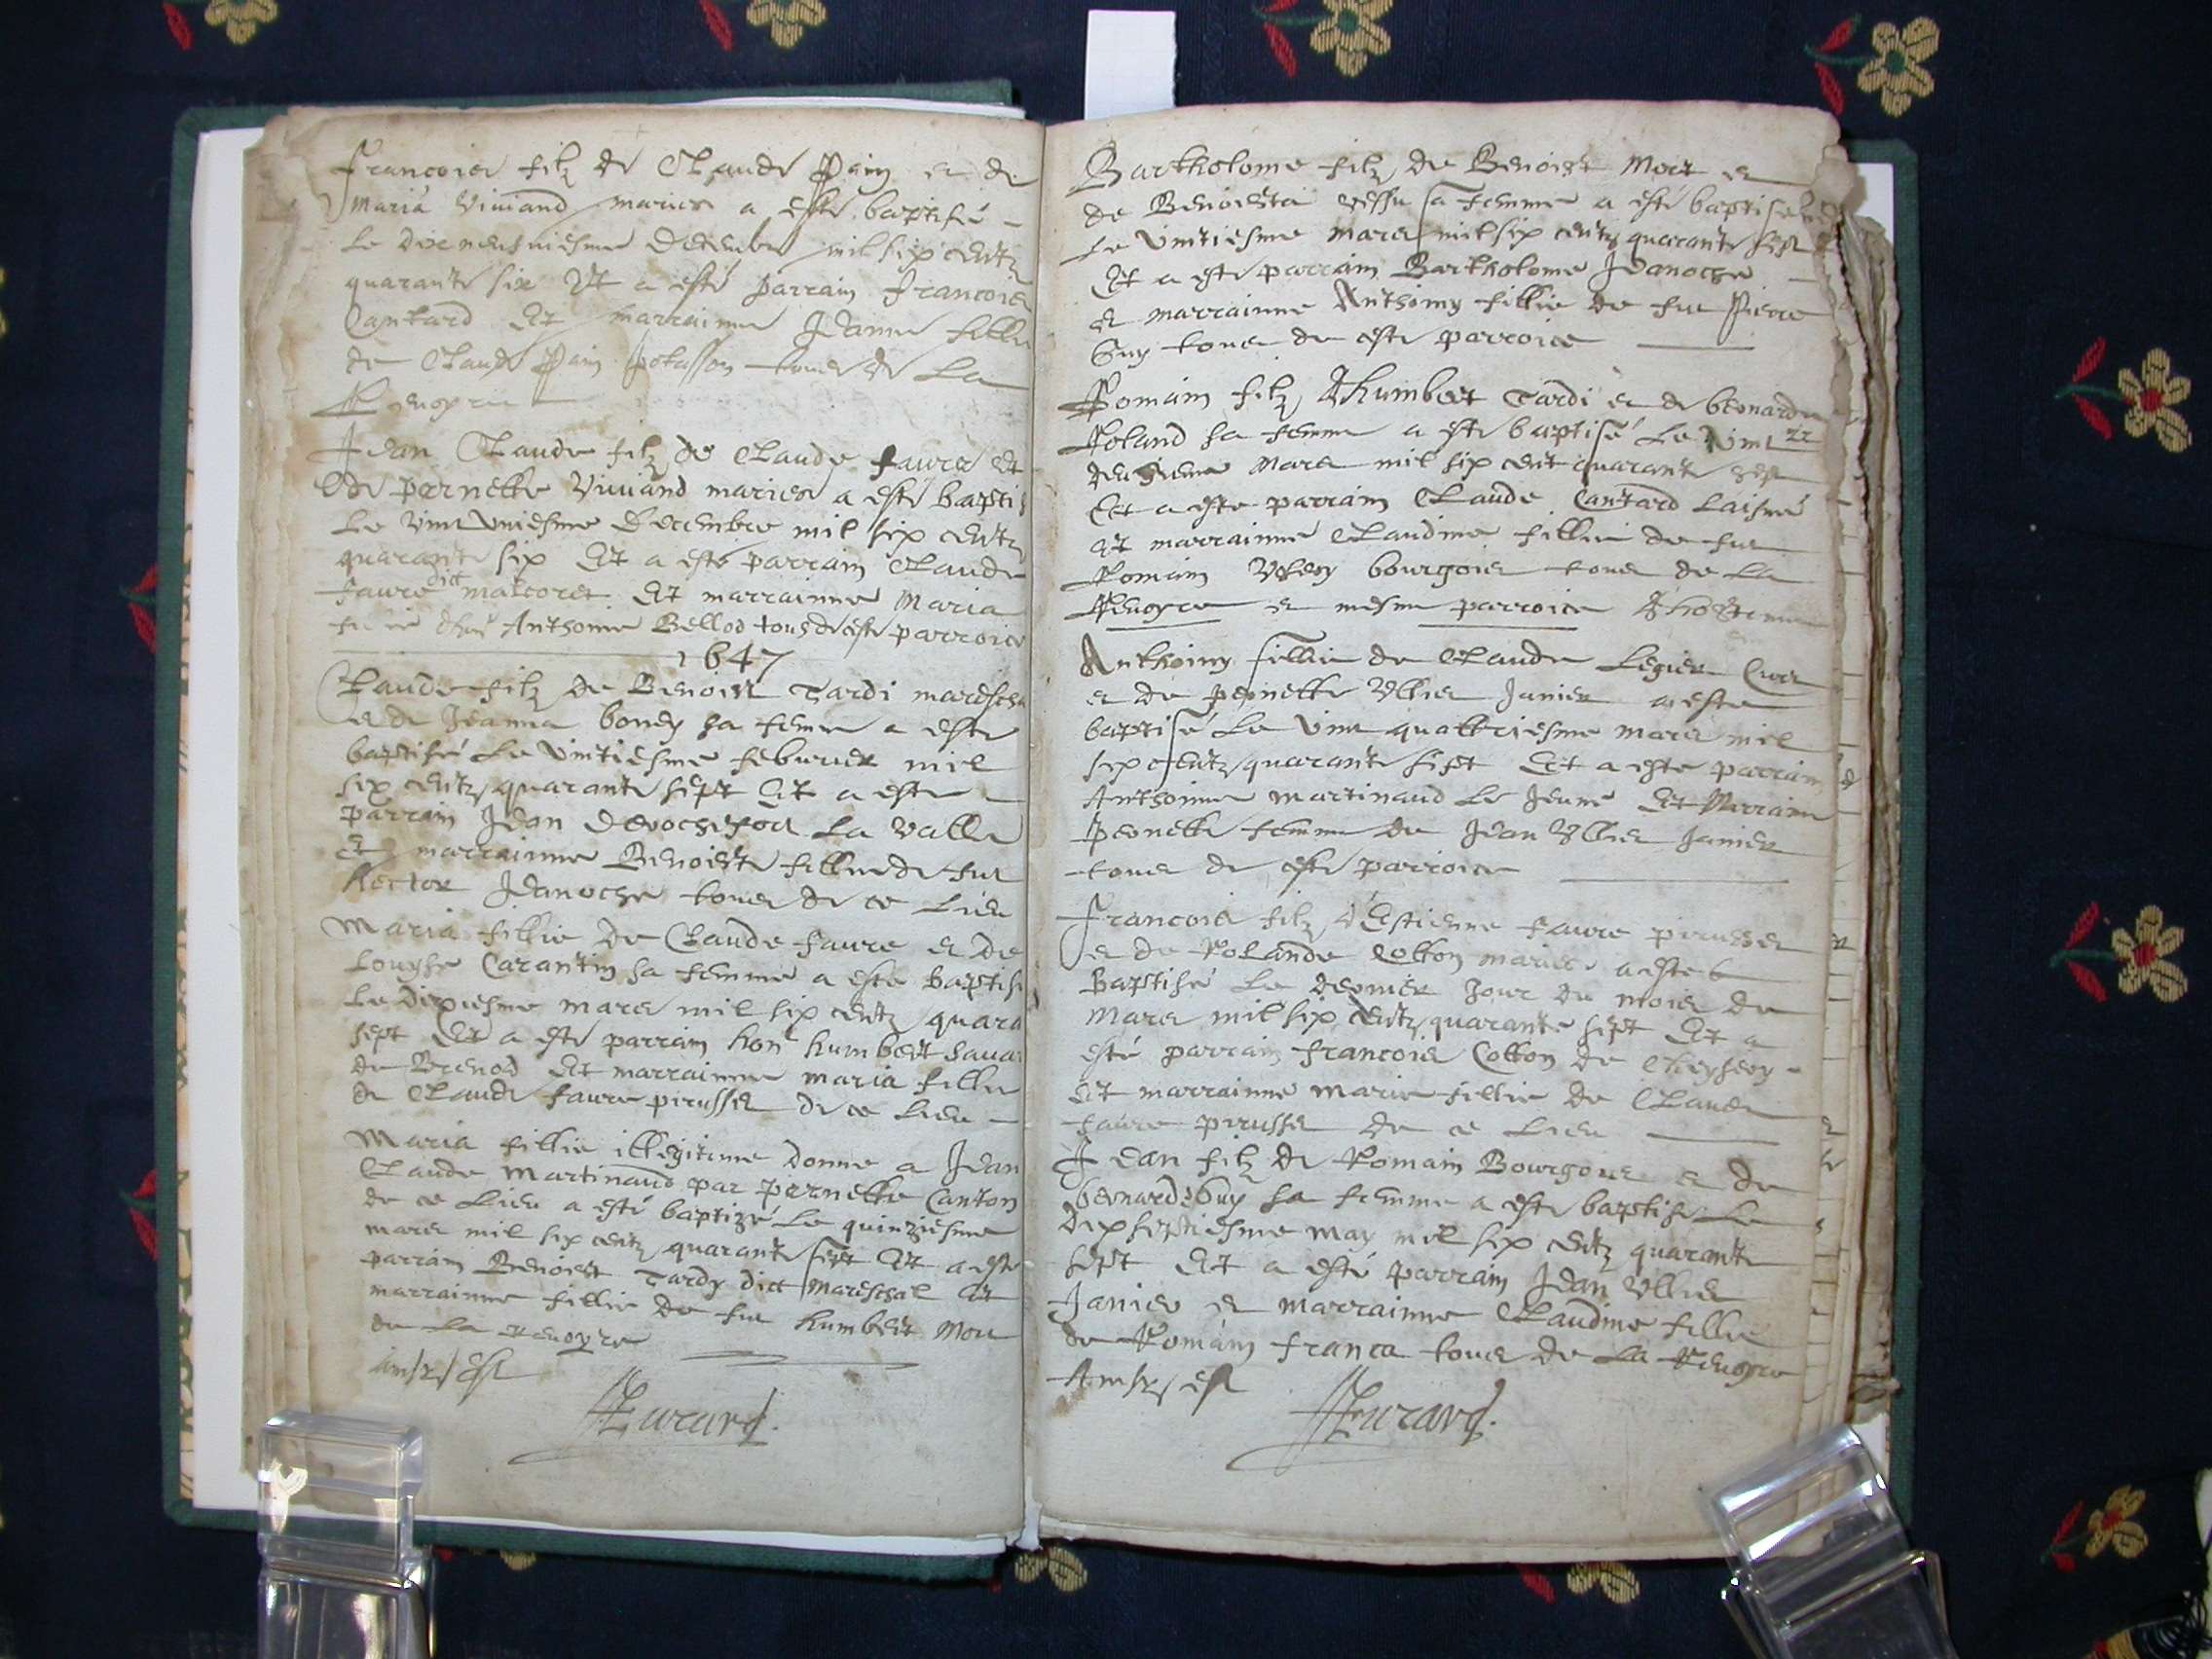 Francois filz de Claude Pain et de
Maria Viviand maries a este baptisé
Le dixneufviesme Decembre mil six centz
quarante six Et a esté parrain Francois
Cantard Et marrainne Jeanne fillie
de Claude Pain tous de La
Jean Claude filz de Claude faure Et
de pernette Viviand maries a esté bapti
Le vint uniesme Decembre mil six centz
quarante six Et a esté parrain Claude
faure dict Et marrainne Maria
Anthoine Bellod tous de ceste parroice
1647
Claude filz de Benoist Tardi maresc
et de Jeanna sa femme a este
baptisé Le vintiesme feburier mil
six centz quarante sept Et a este
parrain Jean La
Et marrainne Benoiste fillie de feu
Hector Jeanoche tous de ce Lieu
Maria fillie de Claude faure et de
Louyse Carantin sa femme a este baptis
Le dixiesme mars mil six centz quara
sept Et a este parrain hon humbert
de Brenod Et marrainne maria fillie
de Claude faure perusset de ce Lieu
Maria fillie illegitime donne a Jean
Claude Martinaud par pernette Canton
de ce Lieu a esté baptizé Le quinziesme
mars mil six centz quarante sept Et a este
parrain Benoist Tardy dict Mareschal Et
marrainne fillie de feu humbert
de La
Bartholome filz de Benoist Mort et
de Benoista sa femme a esté baptisé
Le vintiesme mars mil six centz quarante sept
Et a este parrain Bartholome Jeanoche
et marrainne Anthoiny fillie de feu Pierre
Guy tous de ceste parroice
Romain filz d'humbert Tardi et de bernarde
Roland sa femme a este baptisé Le vint
mars mil six cent quarante sept
Et a este parrain Claude Cantard Laisné
Et marrainne Claudine fillie de feu
Romain bourgois tous de La
et mesme parroice
Anthoiny fillie de Claude
et de pernette Ullier Janier a este
baptisé Le vint quattriesme mars mil
six centz quarante sept Et a este parrain
Anthoinne martinaud Le Jeune Et Marrainne
pernette femme de Jean Ullier Janier
tous de ceste parroice
Francois filz d'Estienne faure perusset
et de Rolande Cotton maries a este
baptisé Le dernier Jour du mois de
Mars mil six centz quarante sept Et a
esté parrain francois Cotton de
Et marrainne marie fillie de Claude
faure perusset de ce Lieu
Jean filz de Romain Bourgois et de
bernarde Guy sa femme a este baptise Le
dixseptiesme may mil six centz quarante
sept Et a esté parrain Jean Ullier
Janier et marrainne Claudine fillie
de Romain franca tous de La